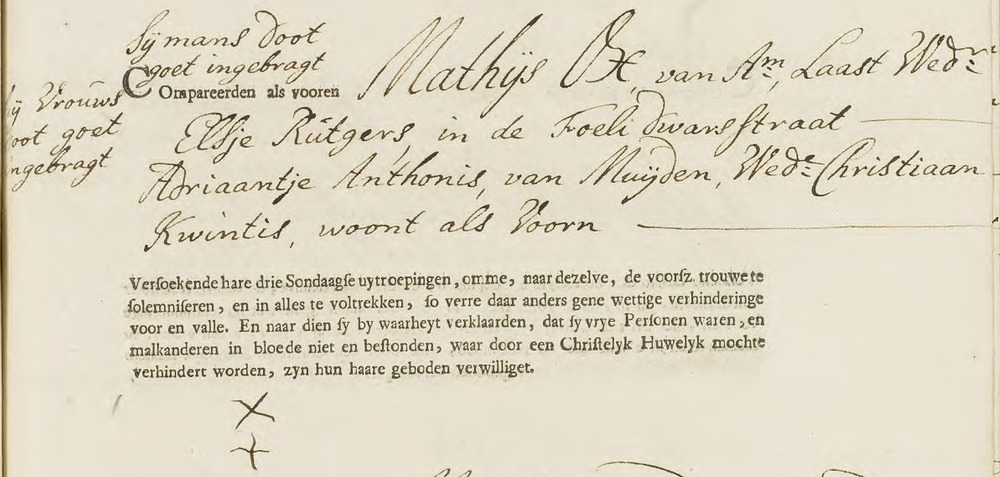 Symans doot
goet ingebragt
Compareerden als vooren Mathijs Ox, van Am, Laast Wedr
Vrouws
doot goet
ingebragt
Elsje Rutgers, in de Foeli dwarsstraat
Adriaantje Anthonis, van Muyden, Wede Christiaan
Kwintis, woont als Voorn
Versoekende hare drie Sondaagse uytroepingen, omme, naar dezelve, de voorsz. trouwe te
solemniseren, en in alles te voltrekken, so verre daar anders gene wettige verhinderinge
voor en valle. En naar dien sy by waarheyt verklaarden, dat sy vrye Personen waren, en
malkanderen in bloede niet en bestonden, waar door een Christelyk Huwelyk mochte
verhindert worden, zyn hun haare geboden verwilliget.
X
X